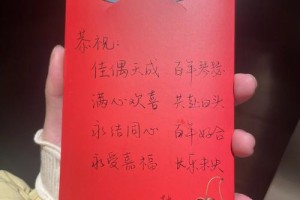 恭祝：
佳偶天成 百年琴瑟
满心欢喜 共赴白头
永结同心 百年好合
永受嘉福 长乐未央